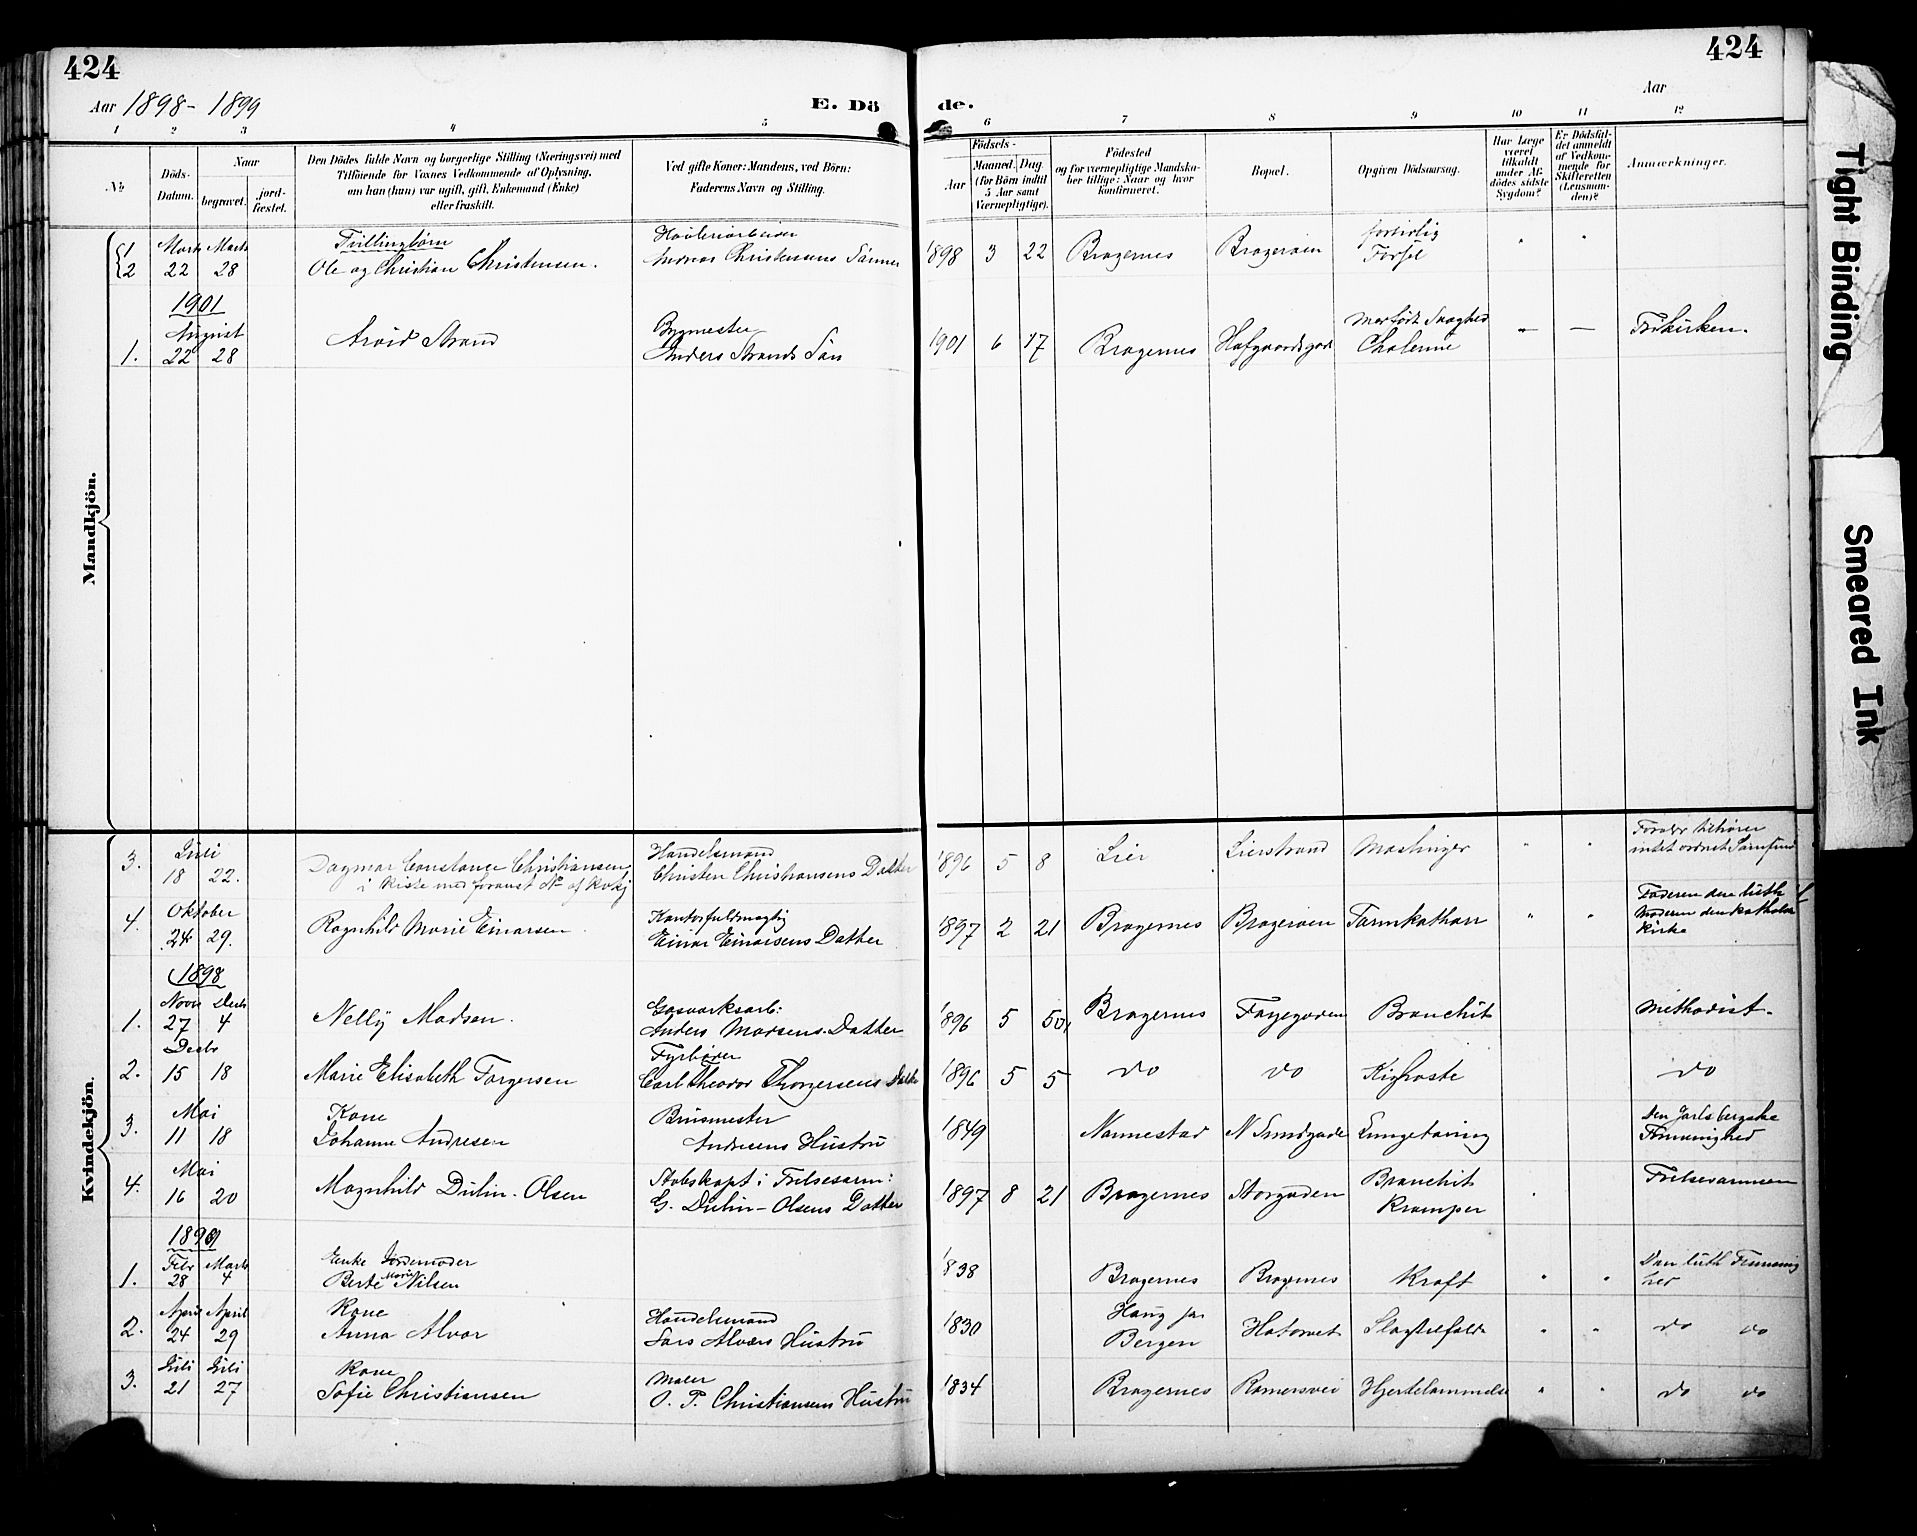 424
424
Aar 1898-1899
E. Dö de.
Aar
1 2 3 4 5 6 7 8 9 10 11 12
№
Döds-Datum.
Naar
begravet.
jord-fæstet.
Den Dödes fulde Navn og borgerlige Stilling (Næringsvei) med
Tilföiende for Voxnes Vedkommende af Oplysning,
om han (hun) var ugift, gift, Enkemand (Enke)
eller fraskilt.
Ved gifte Koner: Mandens, ved Börn:
Faderens Navn og Stilling.
Födsels-
Aar
Maaned. Dag
(for Börn indtil
5 Aar samt
Værnepligtige).
Födested
og for værnepligtige Mandska-
ber tillige: Naar og hvor
konfirmeret.
Bopæl.
Opgiven Dödsaarsag.
Har Læge
været
tilkaldt
under Af-
dödes sidste
Sygdom?
Er Dödsfal-
det anmeldt
af Vedkom-
mende for
Skifteretten
(Lensman-
den)?
Anmærkninger.
Mandkjön.
1 2 Marts 22 Marts 28 Tvillingbörn
Ole og Christian Christensen. Andreas Christensens Sönner 1898 3 22 Bragernes Brageröen fortidlig Försel " "
1901
1. August 22 28 Arvid Strand Bygmester
Anders Strands Sön 1901 6 17 Bragernes Medfödt Svaghed
Cholerine — — Frikirken.
Kvindekjön.
3. Juli 18 22. Dagmar Constance Christiansen Handelsmand
Christen Christiansens Datter 1896 5 8 Lier Lierstrand Mæslinger " "
intet ordnet Samfund
4. Oktober 24 29. Ragnhild Marie Einarsen Kontorfuldmægtig
Einar Einarsens Datter 1897 2 21 Bragernes Brageröen Tarmkatharr " " Faderen den luth
Moderen den katholske
Kirke
1898
1. Novr 27 Decbr 4 Nelly Madsen. Gasværksarb:
Anders Madsens Datter 1896 5 Bragernes Bronchit Methodist.
2. Decbr 15 18 Marie Elisabeth Torgersen Fyrböder
Carl Theodor Thorgersens Datter 1896 5 5 do do Kighoste do
3. Mai 11 18 Kone
Johanne Andresen Brusmester
Andresens Hustru 1849 Nannestad Lungetæring Den Jarlsbergske
Frimenighed
4. Mai 16 20 Magnhild Dulin-Olsen Stabskapt i Frelsesarm:
G. Dulin-Olsens Datter 1897 8 21 Bragernes Storgaden Bronchit
Kramper Frelsesarmeen
1899
1. Febr 28 Marts 4 Enke Jordemoder
Berte Marie Nilsen 1838 Bragernes Bragernes Kræft " " Den luth Frimenig
hed
2. April 24 April 29 Kone
Anna Alvær Handelsmand
Lars Alværs Hustru 1830 Haug pr
Bergen Slagtilfælde " " do do
3. Juli 21 Juli 27 Kone
Sofie Christiansen Maler
O. P. Christiansens Hustru 1834 Bragernes Hjertelammelse " " do do
Tight Binding
Smeared Ink